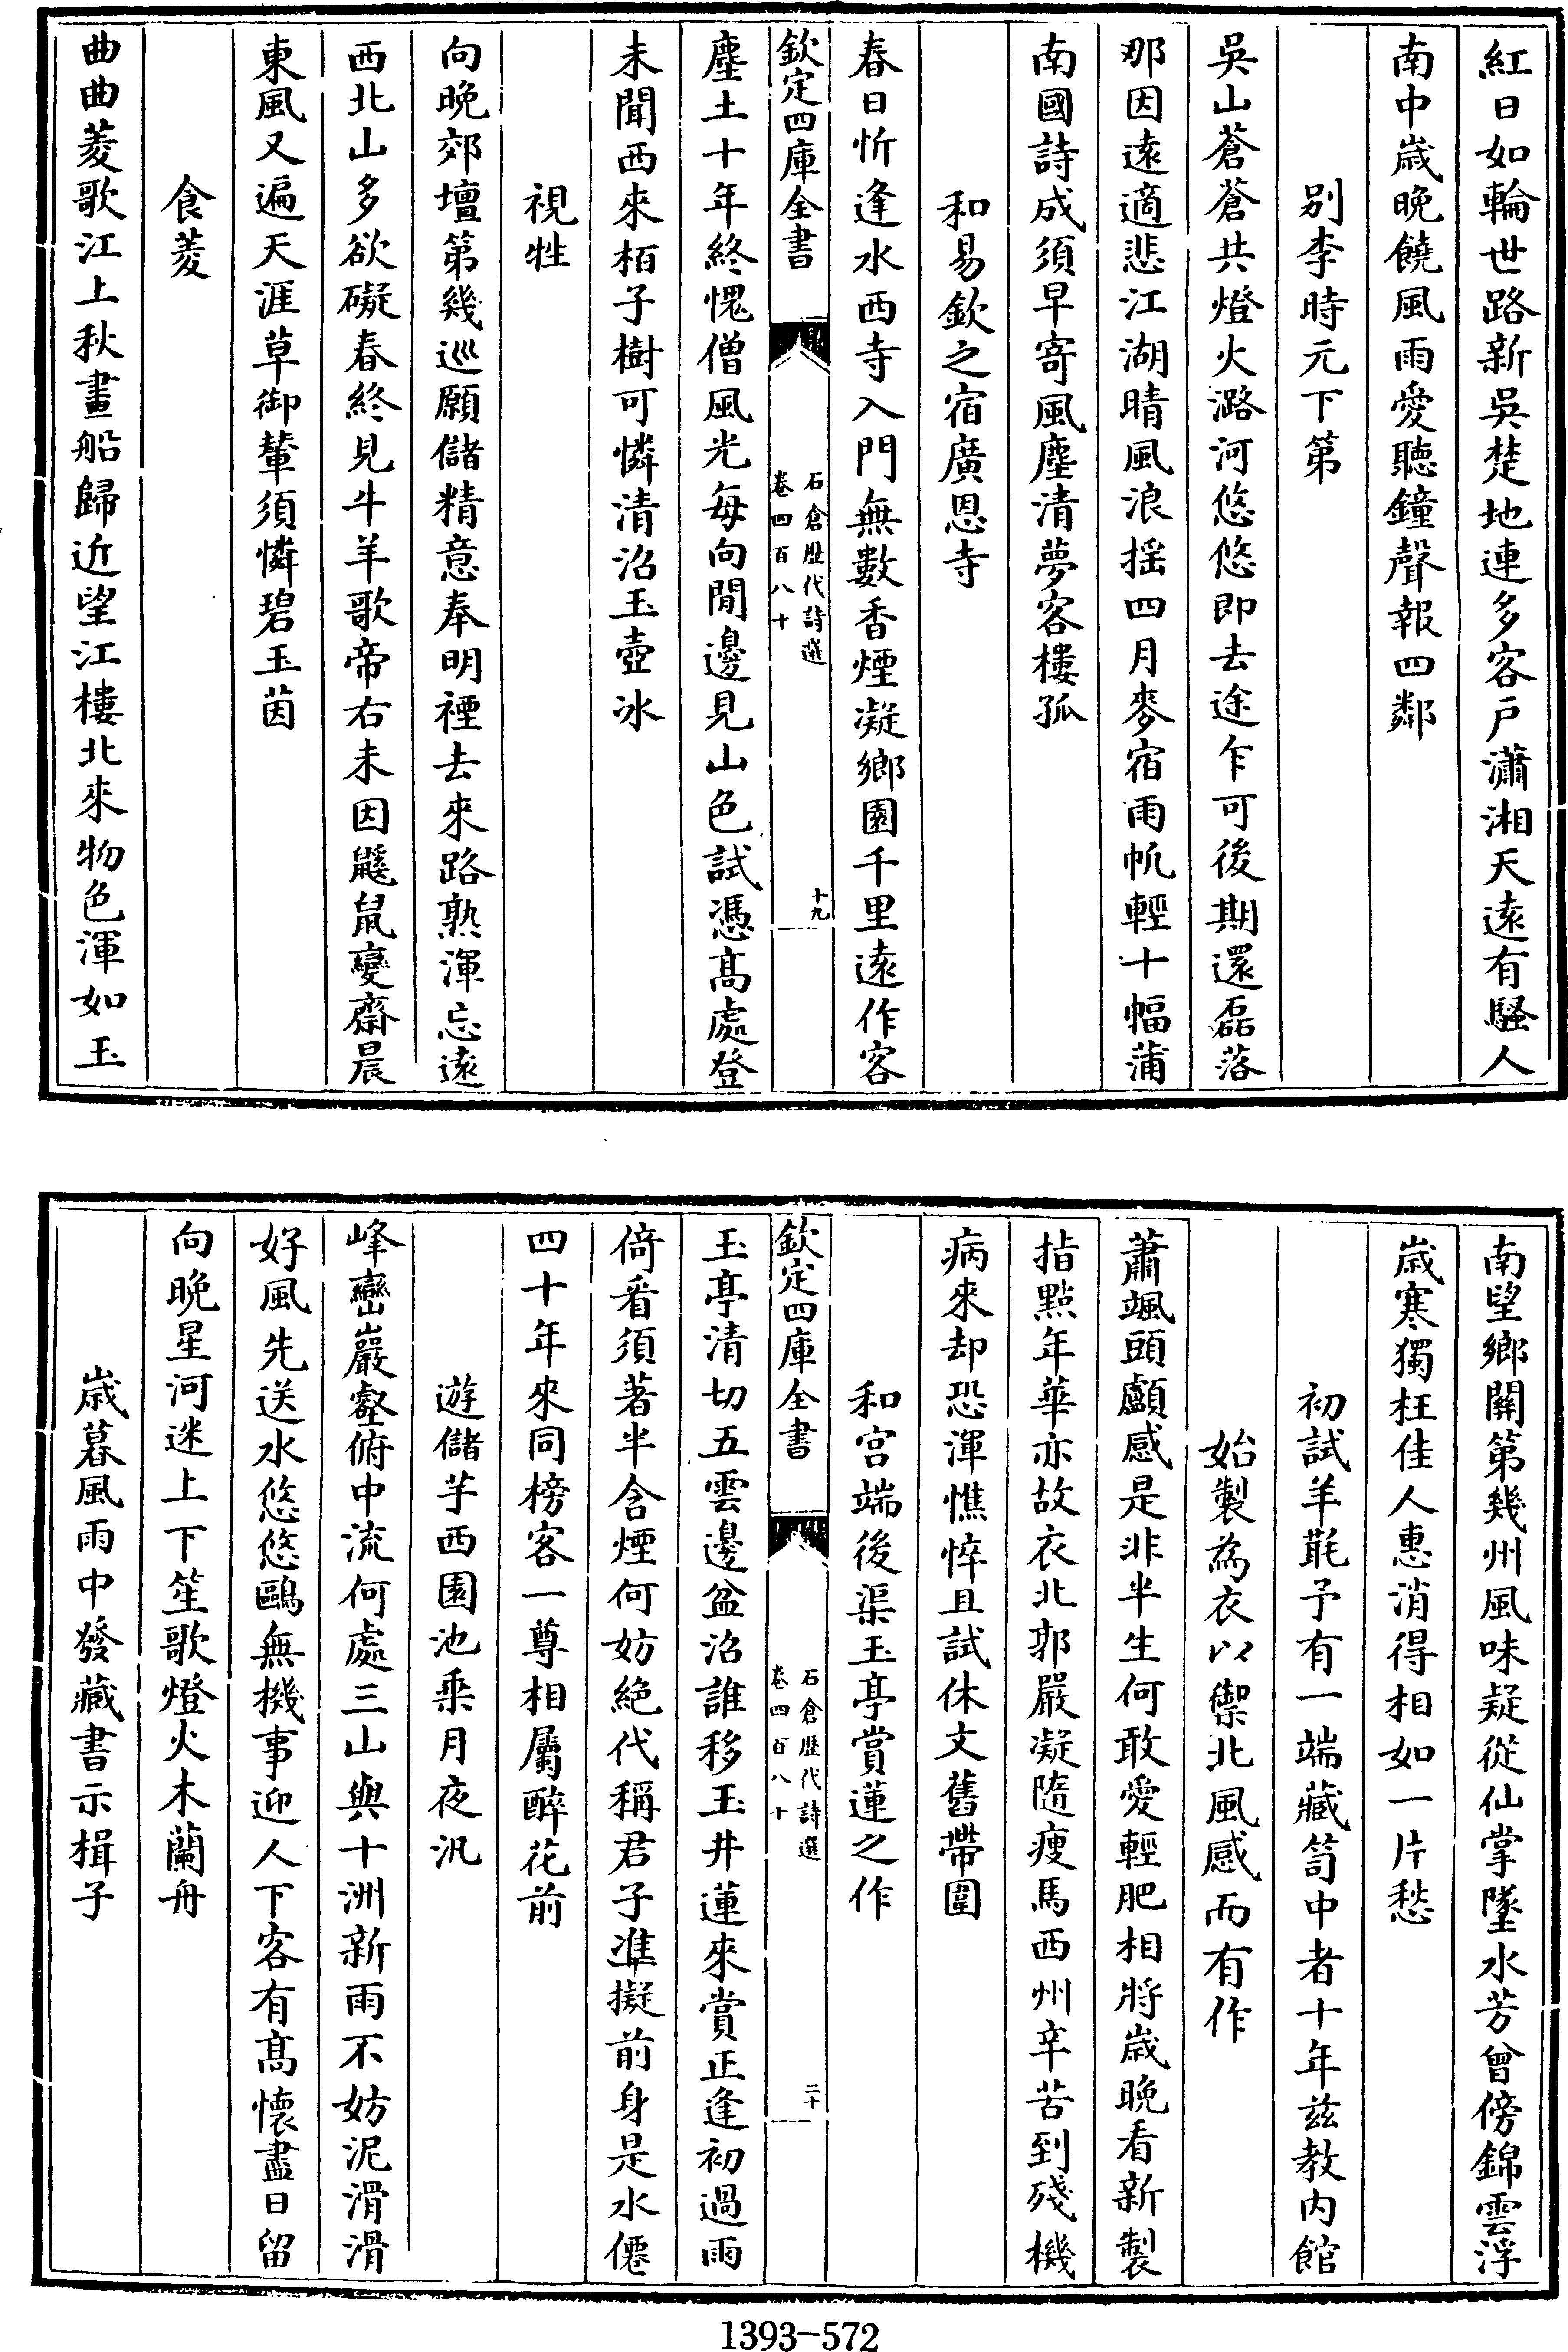 紅日如輪世路新吳楚地連多客戶瀟湘天遠有騷人
南中嵗晩饒風雨愛聽鐘聲報四鄰
别李時元下第
吳山蒼蒼共燈火潞河悠悠即去途乍可後期還磊落
那因遠適悲江湖晴風浪揺四月麥宿雨帆輕十幅蒲
南國詩成須早寄風塵清夢客樓孤
和易欽之宿廣恩寺
春日忻逢水西寺入門無數香煙凝鄉園千里遠作客
欽定四庫全書
石倉歴代詩選
卷四百八十
十九
塵土十年終愧僧風光每向閒邊見山色試憑髙處登
未聞西來栢子樹可憐清沼玉壺冰
視牲
向晩郊壇第幾巡願儲精意奉明禋去來路熟渾忘遠
西北山多欲礙春終見牛羊歌帝右未因鼷鼠變齋晨
東風又遍天涯草御輦須憐碧玉茵
食菱
曲曲菱歌江上秋畫船歸近望江樓北來物色渾如玉
南望鄉關第幾州風味疑從仙掌墜水芳曾傍錦雲浮
嵗寒獨枉佳人惠消得相如一片愁
初試羊毼予有一端藏笥中者十年兹教内館
始製為衣以禦北風感而有作
蕭颯頭顱感是非半生何敢愛輕肥相將嵗晩看新製
指點年華亦故衣北郭嚴凝隨瘦馬西州辛苦到殘機
病來却恐渾憔悴且試休文舊帶圍
和宮端後渠玉亭賞蓮之作
欽定四庫全書
石倉歴代詩選
卷四百八十
二十
玉亭清切五雲邊盆沼誰移玉井蓮來賞正逢初過雨
倚看須著半含煙何妨絶代稱君子準擬前身是水僊
四十年來同榜客一尊相屬醉花前
遊儲芋西園池乘月夜汎
峰巒巖壑俯中流何處三山與十洲新雨不妨泥滑滑
好風先送水悠悠鷗無機事迎人下客有髙懷盡日留
向晩星河迷上下笙歌燈火木蘭舟
嵗暮風雨中發藏書示楫子
1393-572